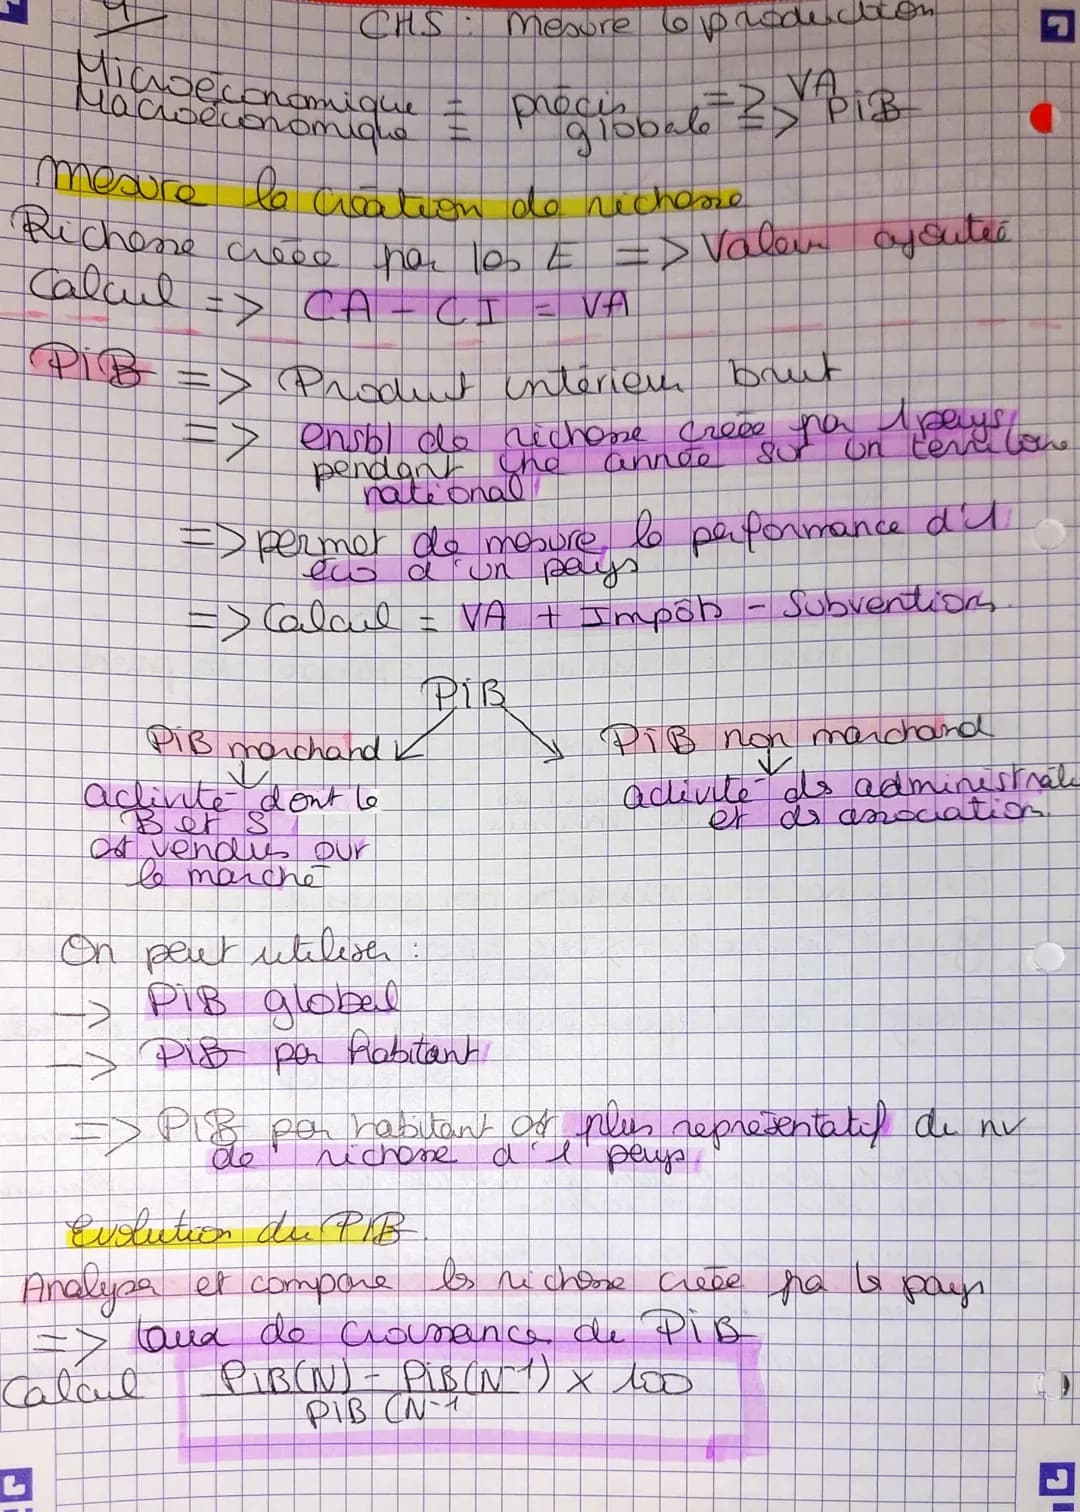 CH5 : Mesure la production
Microéconomique = précis => VA
Macroéconomique = globale => PiB
Mesure la création de richesse
Richesse créée par les E => Valeur ajoutée
Calcul => CA - CI = VA
PiB => Produit intérieur brut
=> ensbl de richesse créée par 1 pays
pendant une année sur un territoire
national
=> permet de mesure la performance d'1
éco d'un pays
=> Calcul = VA + Impôts - Subventions
PiB
PiB marchand PiB non marchand
activité dont le
B et S
est vendus sur
le marché
activité ds administrat
et ds association
On peut utiliser :
-> PiB global
-> PiB par habitant
=> PiB par habitant est plus représentatif du nv
de richesse d'1 pays
Evolution du PIB
Analyse et compare les richesse créée par le pays
=> taux de croissance du PiB
Calcul PiB(N) - PiB(N-1) x 100
PIB (N-1